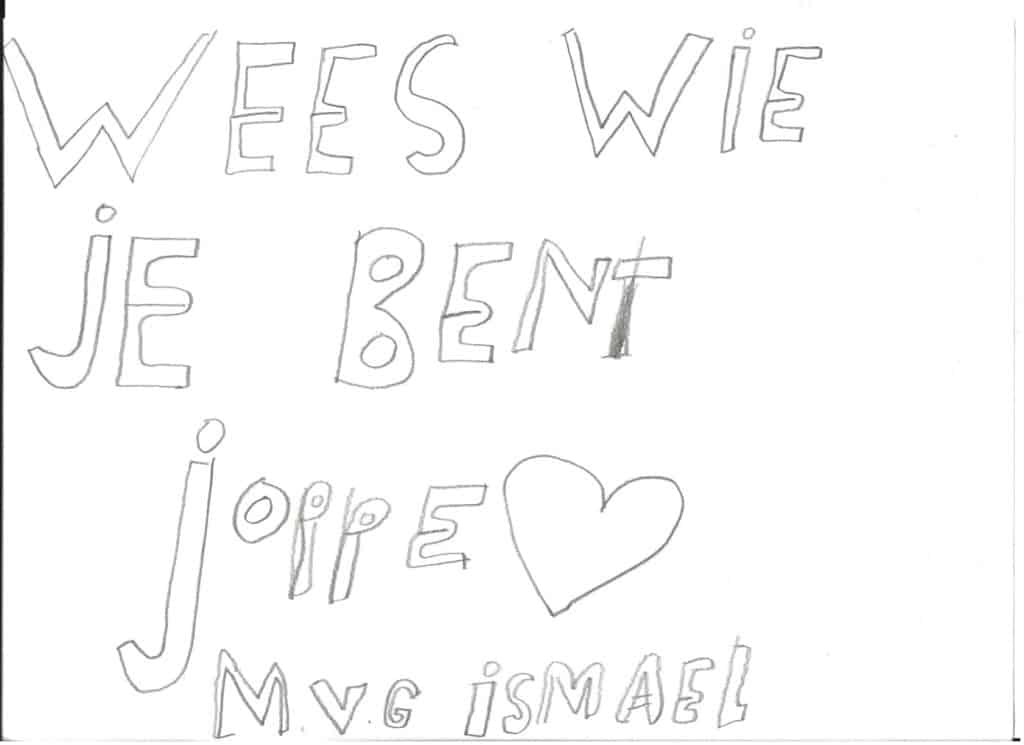 WEES WiE
jE BENT
joppE
M.V.G iSMAEL